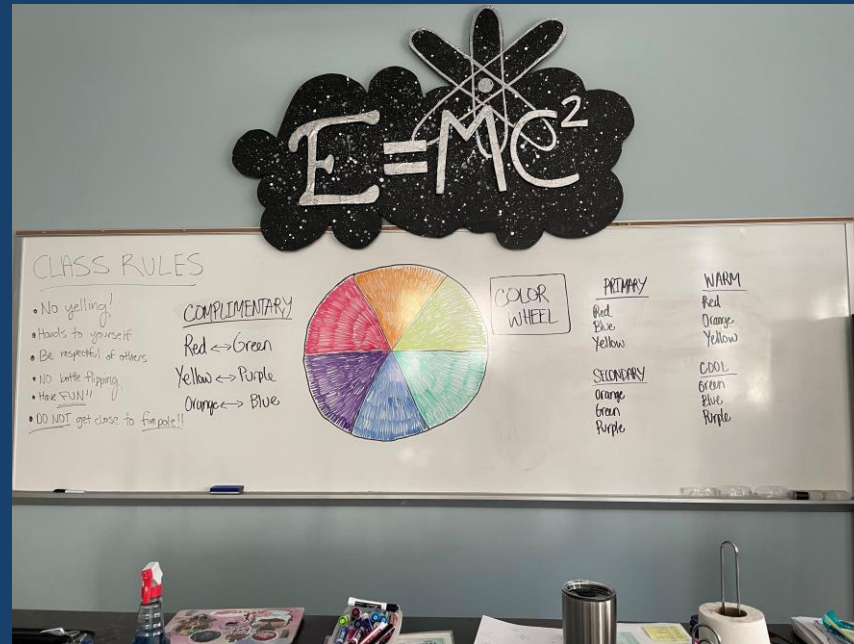 E=MC²
CLASS RULES
• No yelling!
• Hands to yourself
• Be respectful of others
• NO bottle flipping
• Have FUN!!
• DO NOT get close to firepole!!
COMPLIMENTARY
Red ↔ Green
Yellow ↔ Purple
Orange ↔ Blue
COLOR
WHEEL
PRIMARY
Red
Blue
Yellow
SECONDARY
Orange
Green
Purple
WARM
Red
Orange
Yellow
COOL
Green
Blue
Purple